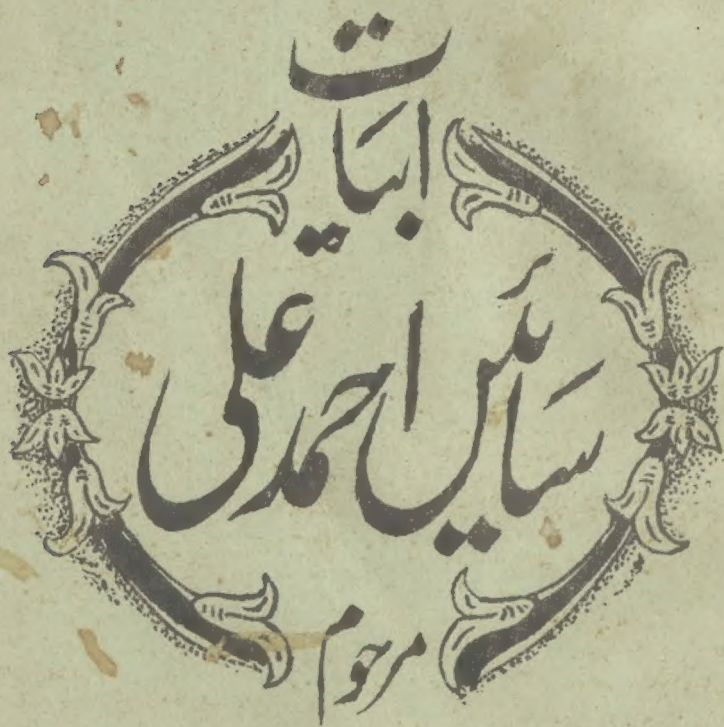 ابیات
سائیں احمد علی
مرحوم